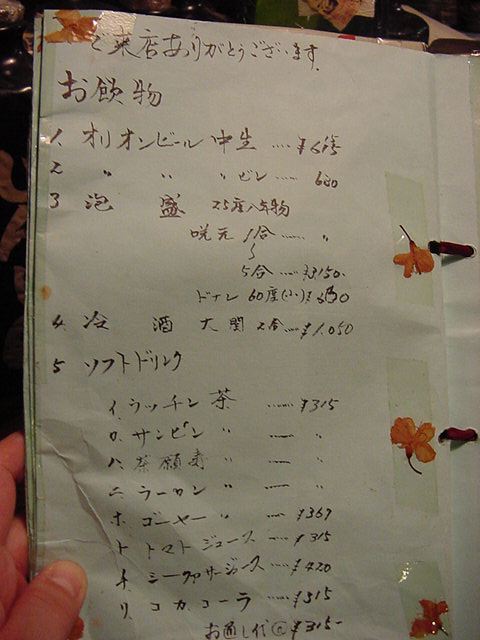 ご来店ありがとうございます。
お飲物
1. オリオンビール 中生 ..... ¥
2 〃 〃 〃 ビン ..... 680
3 泡 盛 25度八年物
咲元 1合 ...... 〃
〜
5合 ...... ¥3150.
ドナン 60度(小)
4. 冷 酒 大関 2合 .... ¥1.050
5 ソフトドリンク
イ. ウッチン 茶 ..... ¥315
ロ. サンピン 〃 ..... 〃
ハ. 茶願寿 〃 ..... 〃
ニ ラーカン 〃 ..... 〃
ホ. ゴーヤー 〃 ..... ¥367
ト トマトジュース ..... ¥315
チ. シークワサージュース .... ¥420
リ. コカコーラ ..... ¥315
お通し代@ ¥315-